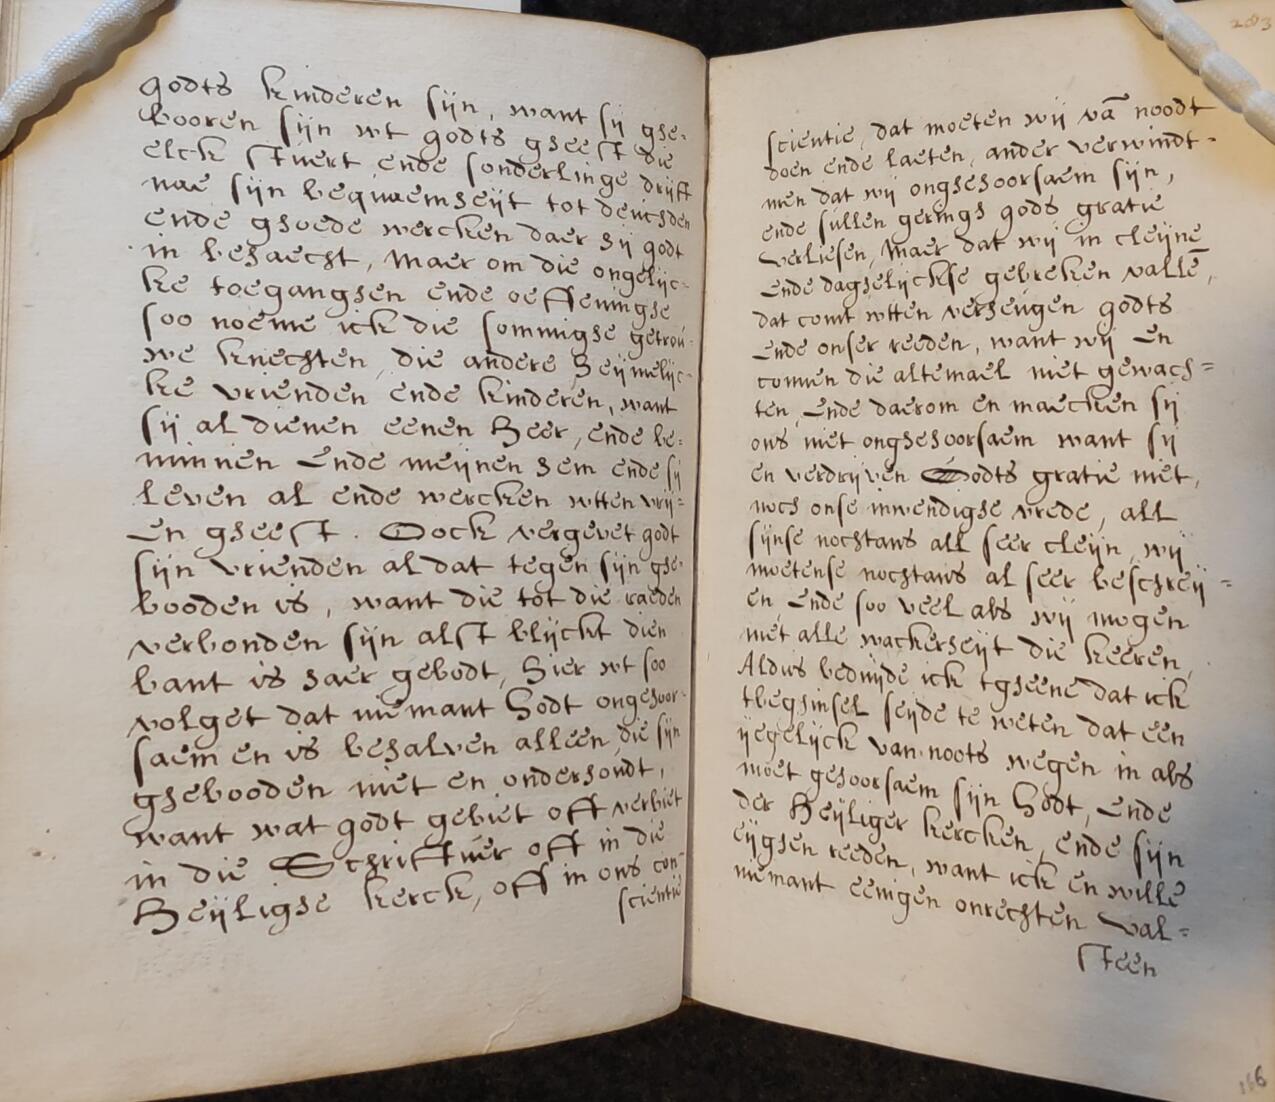 godts kinderen sijn, want sij ghe-
booren sijn wt godts gheest die
elck stiert ende sonderlinge drijft
nae sijn bequaemheijt tot deuchden
ende ghoede wercken daer hij godt
in behaecht, maer om die ongelijc=
ke toeganghen ende oeffeninghe
soo noeme ick die sommighe getrou-
we knechten, die andere heijmelijc-
ke vrienden ende kinderen, want
sij al dienen eenen heer, ende be=
minnen ende meijnen hem ende sij
leven al ende wercken wtten vrij=
en gheest. Oock vergevet godt
sijn vrienden al dat tegen sijn ghe-
booden is, want die tot die raeden
verbonden sijn alst blijckt dien
bant is haer gebodt, hier wt soo
volget dat niemant Godt ongehoor-
saem en is behalven alleen, die sijn
ghebooden niet en onderhoudt,
want wat godt gebiet oft verbiet
in die Schriftuer oft in die
heijlighe kerck, oft in ons con-
scientie
203
scientie, dat moeten wij vā noodt
doen ende laeten, ander verwindt-
men dat wij onghehoorsaem sijn,
ende sullen gerings gods gratie
verliesen, maer dat wij in cleijne
ende daghelijckse gebreken vallē,
dat comt wtten verhengen godts
ende onser reeden, want wij en
connen die altemael niet gewach=
ten, ende daerom en maecken sij
ons niet onghehoorsaem want sij
en verdrijven Godts gratie niet,
noch onse inwendighe vrede, all
sijnse nochtans all seer cleijn, wij
moetense nochtans al seer beschreij=
en, ende soo veel als wij mogen
met alle wackerheijt die keeren,
Aldus beduijde ick tgheene dat ick
tbeghinsel seijde te weten dat een
ijegelijck van noots wegen in als
moet gehoorsaem sijn Godt, ende
der heijliger kercken, ende sijn
eijghen reeden, want ick en wille
niemant eenigen onrechten val=
steen
166